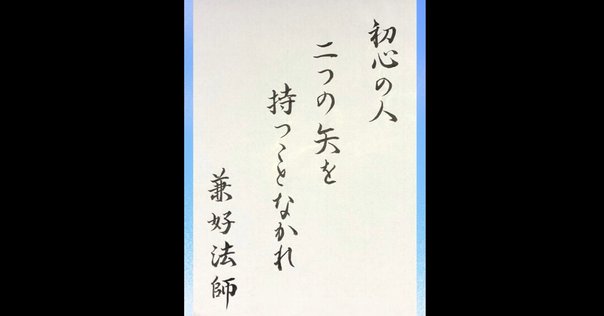 初心の人
二つの矢を
持つことなかれ
兼好法師